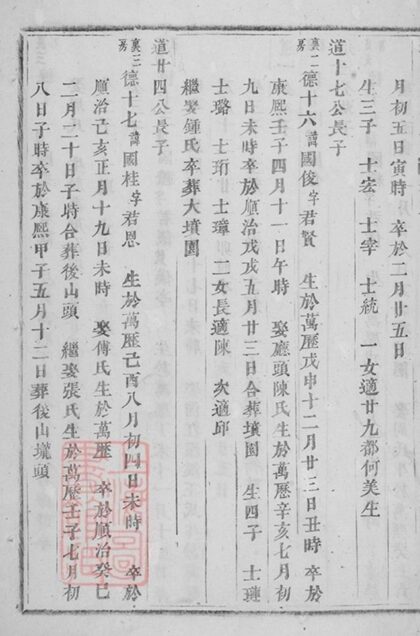 月初五日寅時　卒於二月廿五日
生三子　士宏　士宰　士統　一女適廿九都何美生
道十七公長子
裏二房德十六諱國俊字君賢　生於萬曆戊申十二月廿三日丑時　卒於
康熙壬子四月十一日午時　娶廳頭陳氏生於萬曆辛亥七月初
九日未時卒於順治戊戌五月廿三日合葬墳園　生四子　士璉
士璐　士珩　士璋　二女長適陳　次適邱
繼娶鍾氏卒葬大墳園
道廿四公長子
裏三房德十七諱國桂字君恩　生於萬曆己酉八月初四日未時　卒於
順治己亥正月十九日未時　娶傅氏生於萬曆　卒於順治癸巳
二月二十日子時合葬後山頭　繼娶張氏生於萬曆壬子七月初
八日子時卒於康熙甲子五月十二日葬後山壠頭